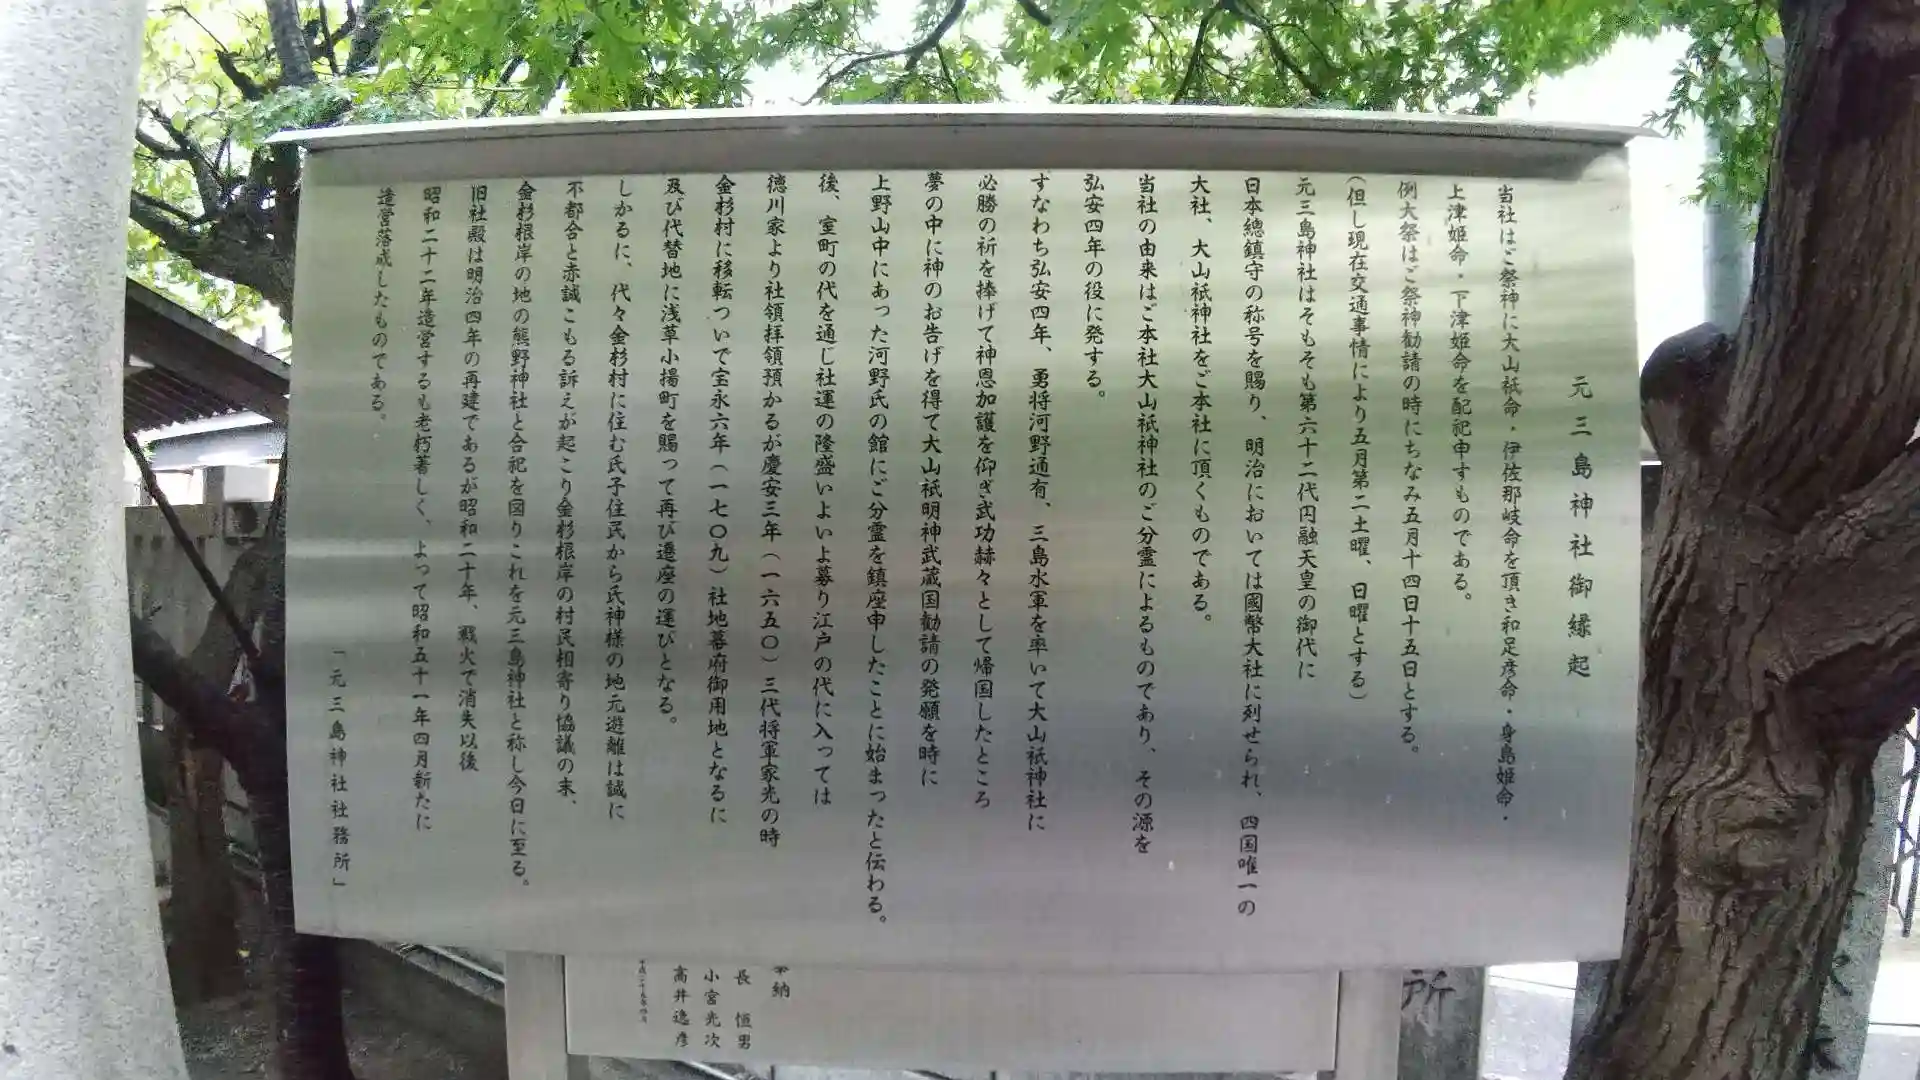 元三島神社御縁起
当社はご祭神に大山祇命・伊佐那岐命を頂き和足彦命・身島姫命・
上津姫命・下津姫命を配祀申すものである。
例大祭はご祭神勧請の時にちなみ五月十四日十五日とする。
(但し現在交通事情により五月第二土曜、日曜とする)
元三島神社はそもそも第六十二代円融天皇の御代に
日本總鎮守の称号を賜り、明治においては國幣大社に列せられ、四国唯一の
大社、大山祇神社をご本社に頂くものである。
当社の由来はご本社大山祇神社のご分霊によるものであり、その源を
弘安四年の役に発する。
すなわち弘安四年、勇将河野通有、三島水軍を率いて大山祇神社に
必勝の祈を捧げて神恩加護を仰ぎ武功赫々として帰国したところ
夢の中に神のお告げを得て大山祇明神武蔵国勧請の発願を時に
上野山中にあった河野氏の館にご分霊を鎮座申したことに始まったと伝わる。
後、室町の代を通じ社運の隆盛いよいよ募り江戸の代に入っては
徳川家より社領拝領預かるが慶安三年(一六五〇)三代将軍家光の時
金杉村に移転ついで宝永六年(一七〇九)社地幕府御用地となるに
及び代替地に浅草小揚町を賜って再び遷座の運びとなる。
しかるに、代々金杉村に住む氏子住民から氏神様の地元遊離は誠に
不都合と赤誠こもる訴えが起こり金杉根岸の村民相寄り協議の末、
金杉根岸の地の熊野神社と合祀を図りこれを元三島神社と称し今日に至る。
旧社殿は明治四年の再建であるが昭和二十年、戦火で消失以後
昭和二十二年造営するも老朽著しく、よって昭和五十一年四月新たに
造営落成したものである。
「元三島神社社務所」
奉納
長 恒男
小宮光次
高井逸彦
所